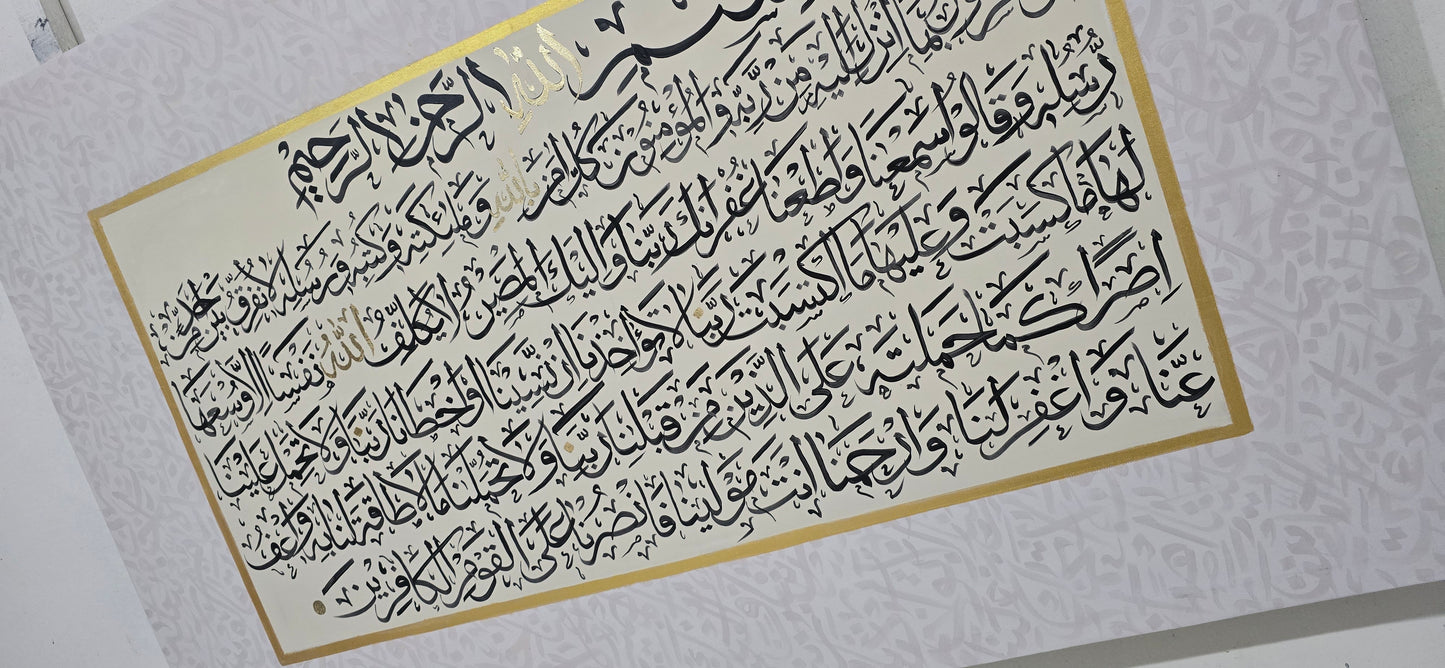 سمِ اللهِ الرَّحمٰنِ الرَّحِيْمِ
بِمَا اُنزِلَ اِلَيْهِ مِن رَّبِّهٖ وَالْمُؤْمِنُونَ كُلٌّ اٰمَنَ بِاللهِ وَمَلٰئِكَتِهٖ وَكُتُبِهٖ وَرُسُلِهٖ لَا نُفَرِّقُ بَيْنَ اَحَدٍ مِّن
رُّسُلِهٖ وَقَالُوْا سَمِعْنَا وَاَطَعْنَا غُفْرَانَكَ رَبَّنَا وَاِلَيْكَ الْمَصِيْرُ لَا يُكَلِّفُ اللهُ نَفْسًا اِلَّا وُسْعَهَا
لَهَا مَا كَسَبَتْ وَعَلَيْهَا مَا اكْتَسَبَتْ رَبَّنَا لَا تُؤَاخِذْنَا اِن نَّسِيْنَا اَوْ اَخْطَاْنَا رَبَّنَا وَلَا تَحْمِلْ عَلَيْنَا
اِصْرًا كَمَا حَمَلْتَهٗ عَلَى الَّذِيْنَ مِن قَبْلِنَا رَبَّنَا وَلَا تُحَمِّلْنَا مَا لَا طَاقَةَ لَنَا بِهٖ وَاعْفُ
عَنَّا وَاغْفِرْ لَنَا وَارْحَمْنَا اَنْتَ مَوْلٰينَا فَانْصُرْنَا عَلَى الْقَوْمِ الْكَافِرِيْنَ